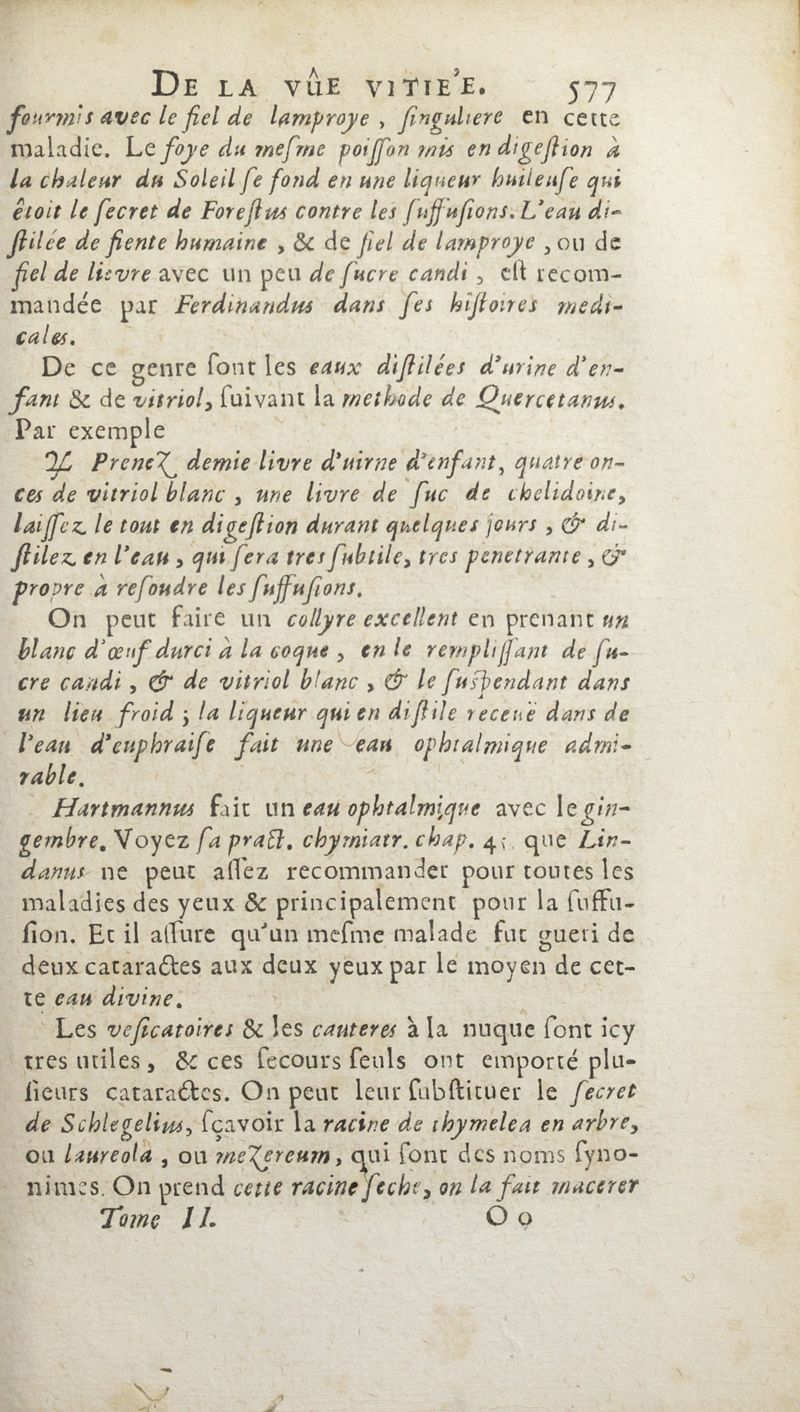 DE LA VÛE VITIE'E. 577
fourmis avec le fiel de lamproye , ſinguliere en cette
maladie. Le foye du meſme poiſſon mis en digeſtion à
la chaleur du Soleil ſe fond en une liqueur huileuſe qui
êtoit le ſecret de Foreſtus contre les ſuffuſions. L'eau di-
ſtilée de fiente humaine , & de fiel de lamproye , ou de
fiel de lievre avec un peu de ſucre candi , eſt recom-
mandée par Ferdinandus dans ſes hiſtoires medi-
cales.
De ce genre ſont les eaux diſtilées d'urine d'en-
fant & de vitriol, ſuivant la methode de Quercetanus.
Par exemple
℞ Prenez demie livre d'uirne d'enfant, quatre on-
ces de vitriol blanc , une livre de ſuc de chelidoine,
laiſſez le tout en digeſtion durant quelques jours , & di-
ſtilez en l'eau , qui ſera tres ſubtile, tres penetrante , &
propre à reſoudre les ſuffuſions.
On peut faire un collyre excellent en prenant un
blanc d'œuf durci à la coque , en le rempliſſant de ſu-
cre candi , & de vitriol blanc , & le ſuſpendant dans
un lieu froid ; la liqueur qui en diſtile receuë dans de
l'eau d'euphraiſe fait une eau ophtalmique admi-
rable.
Hartmannus fait un eau ophtalmique avec le gin-
gembre. Voyez ſa pract. chymiatr. chap. 45. que Lin-
danus ne peut aſſez recommander pour toutes les
maladies des yeux & principalement pour la ſuffu-
ſion. Et il aſſure qu'un meſme malade fut gueri de
deux cataractes aux deux yeux par le moyen de cet-
te eau divine.
Les veſicatoires & les cauteres à la nuque ſont icy
tres utiles , & ces ſecours ſeuls ont emporté plu-
ſieurs cataractes. On peut leur ſubſtituer le ſecret
de Schlegelius, ſçavoir la racine de thymelea en arbre,
ou laureola , ou mezereum , qui ſont des noms ſyno-
nimes. On prend cette racine ſeche, on la fait macerer
Tome II. O o